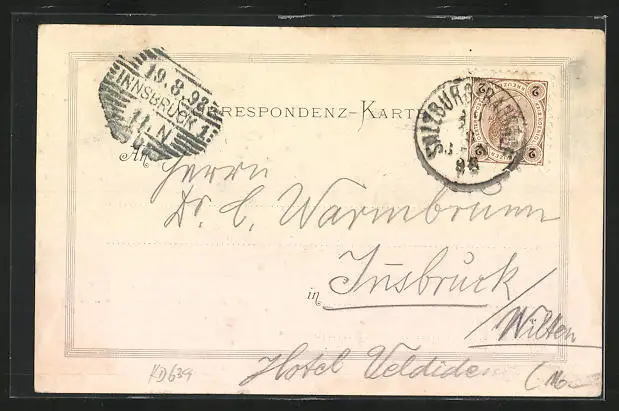 19.8.98
INNSBRUCK 1
11.N
RESPONDENZ-KARTE
SALZBURG
98
2 2
2 2
An
Herrn
Dr. C. Warmbrunn
in Insbruck
/ Wilten
Hotel Veldiden
KD639